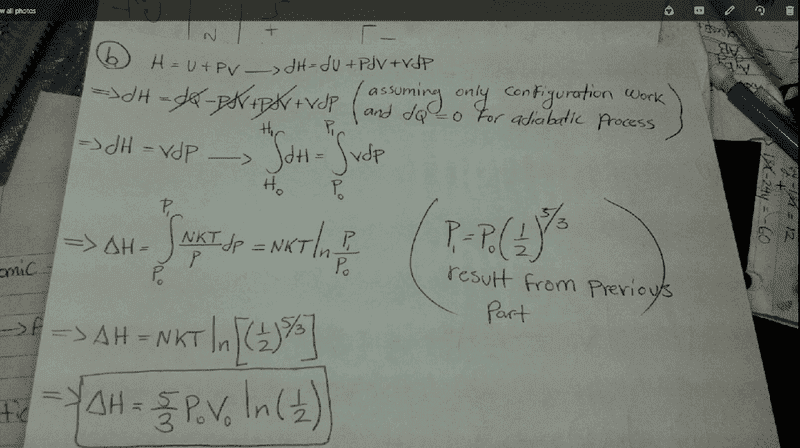 w all photos
N +
(b) H = U + PV → dH = dU + PdV + VdP
⇒ dH = dQ - PdV + PdV + VdP (assuming only configuration work and dQ = 0 for adiabatic process)
⇒ dH = VdP → ∫_{H₀}^{H₁} dH = ∫_{P₀}^{P₁} VdP
⇒ ΔH = ∫_{P₀}^{P₁} NKT/P dP = NKT ln P₁/P₀
(P₁ = P₀(1/2)^{5/3}
result from previous
Part)
⇒ ΔH = NKT ln[(1/2)^{5/3}]
⇒ ΔH = 5/3 P₀V₀ ln(1/2)
omic